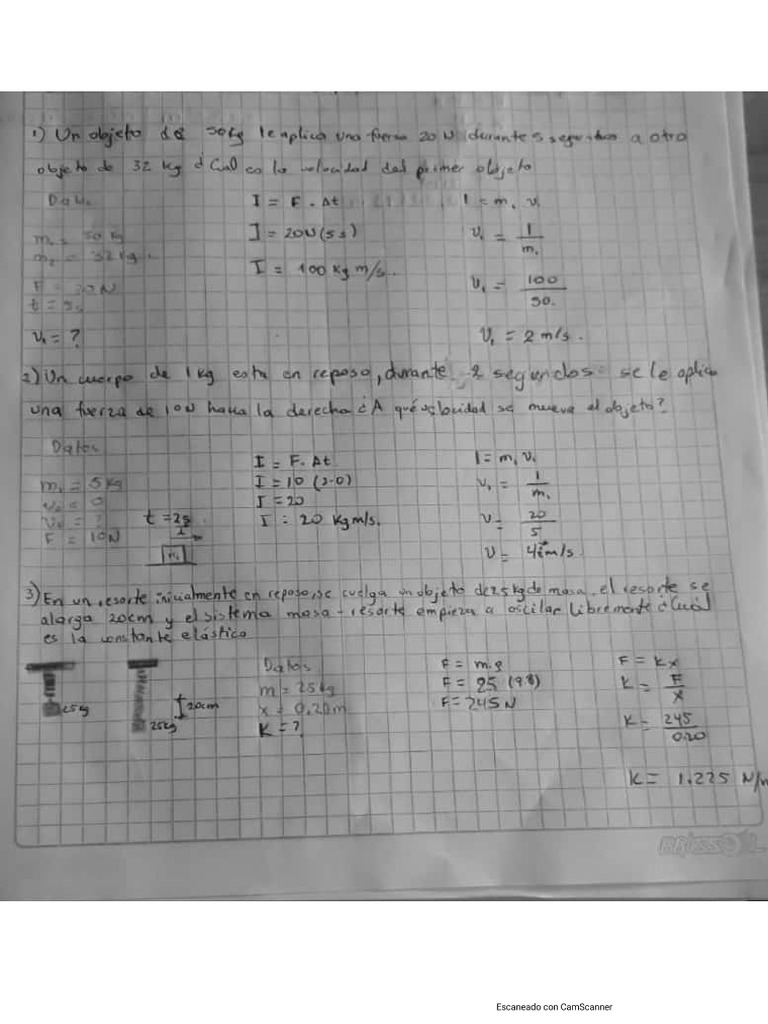 1) Un objeto de 50kg le aplica una fuerza 20 N durante 5 segundos a otro
objeto de 32 kg ¿Cual es la velocidad del primer objeto
Datos
m₁ = 50 kg
m₂ = 32 kg
F = 20N
t = 5s
v₁ = ?
I = F . Δt
I = 20N(5s)
I = 100 kg m/s.
I = m₁ v₁
v₁ = I / m₁
v₁ = 100 / 50.
v₁ = 2 m/s.
2) Un cuerpo de 1 kg esta en reposo, durante 2 segundos se le aplica
una fuerza de 10N hacia la derecha ¿A qué velocidad se mueve el objeto?
Datos
m₁ = 5 kg
v₀ = 0
v₁ = ?
F = 10N
t = 2s
m₁
I = F. Δt
I = 10 (2-0)
I = 20
I = 20 kg m/s.
I = m₁ v₁
v₁ = I / m₁
v = 20 / 5
v = 4 m/s.
3) En un resorte inicialmente en reposo, se cuelga un objeto de 25 kg de masa, el resorte se
alarga 20cm y el sistema masa - resorte empieza a oscilar libremente ¿Cuál
es la constante elástica
25kg
25kg
20cm
Datos
m = 25kg
x = 0.20m
K = ?
F = m.g
F = 25 (9.8)
F = 245 N
F = Kx
K = F / x
K = 245 / 0.20
K = 1.225 N/m
PRISSOL
Escaneado con CamScanner